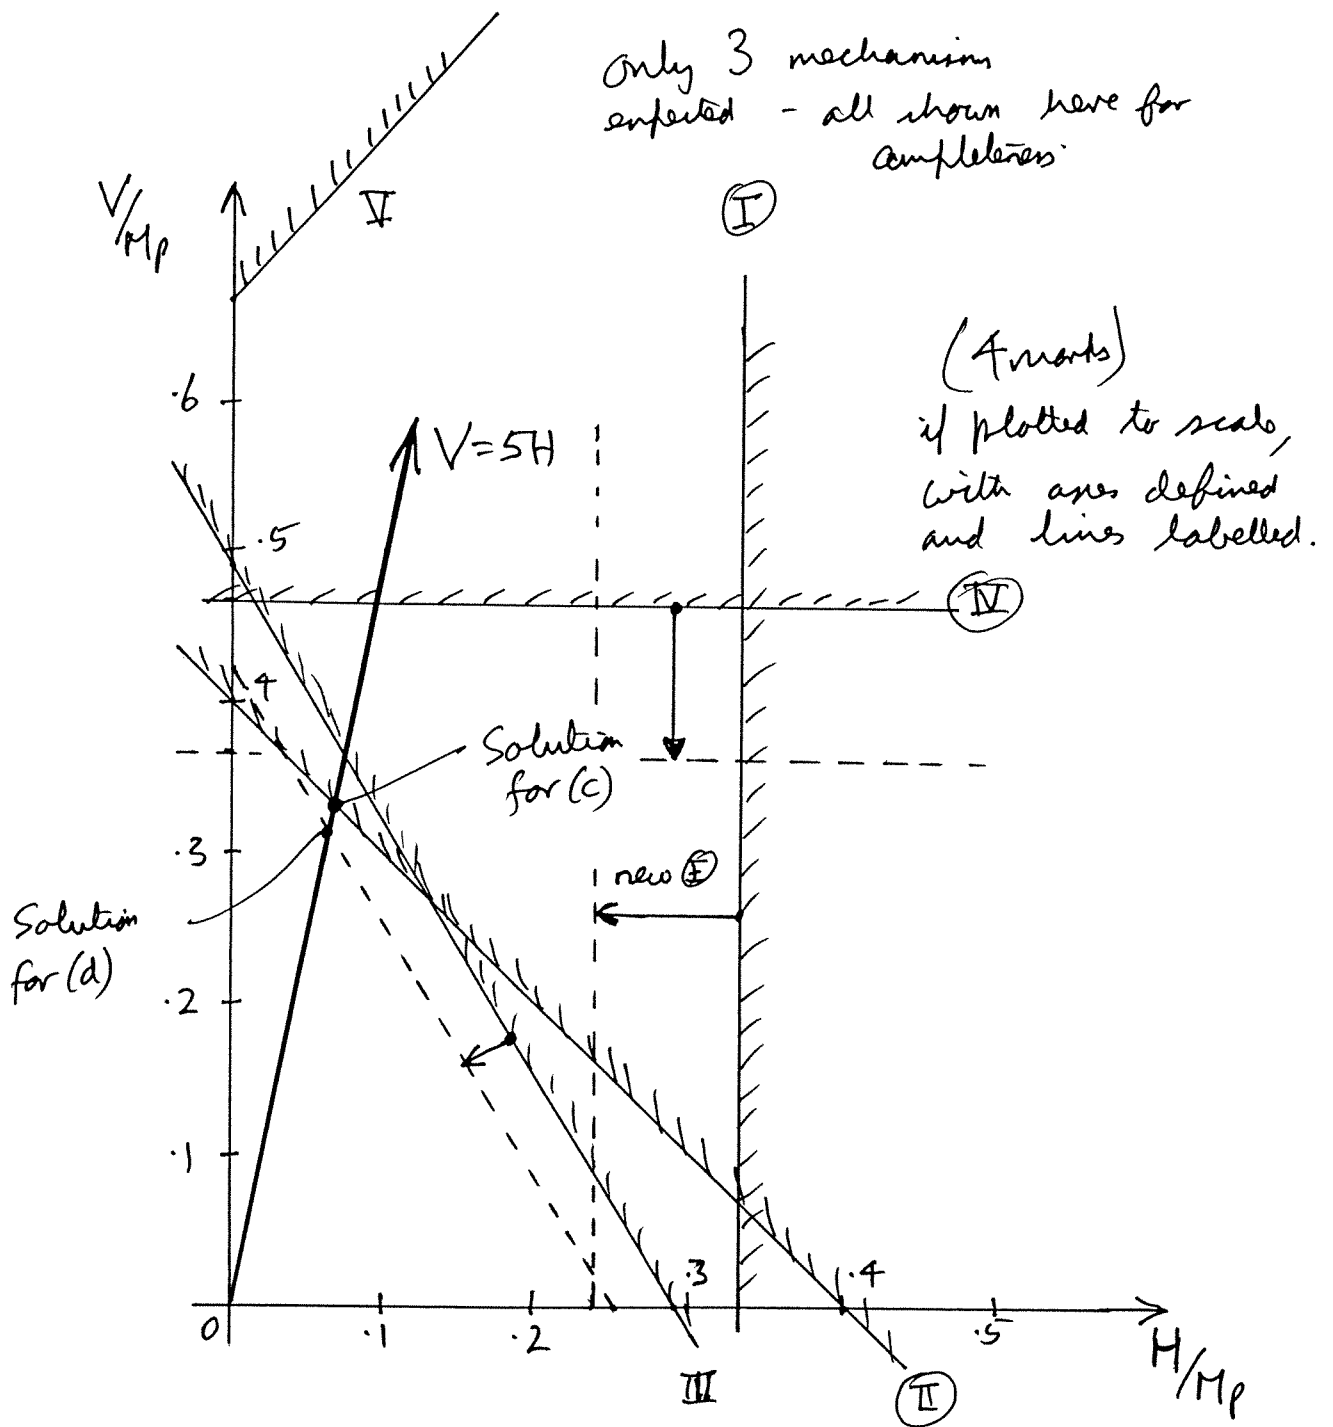 Only 3 mechanisms
expected - all shown here for
completeness.
V/Mp
V
I
(4 marks)
if plotted to scale,
with axes defined
and lines labelled.
.6
V=5H
.5
IV
.4
Solution
for (c)
.3
new I
Solution
for (d)
.2
.1
.3
.4
0
.1
.2
.5
H/Mp
III
II